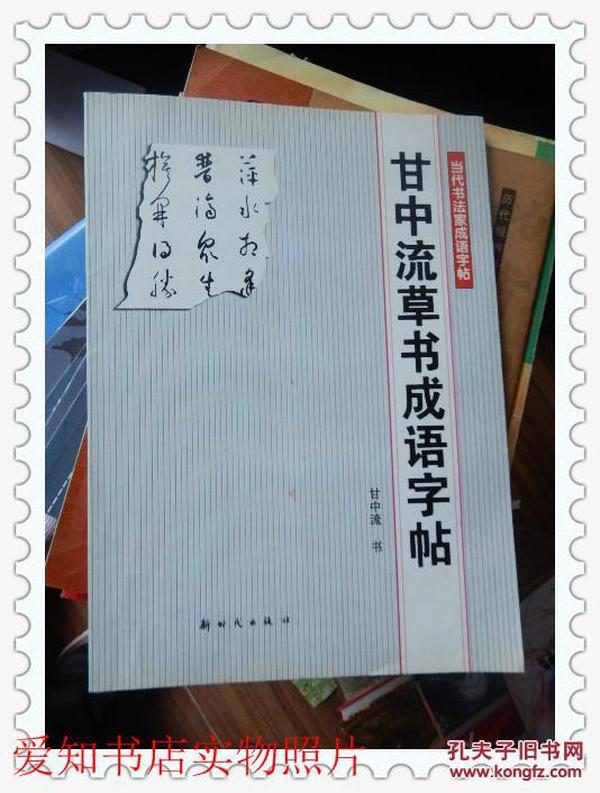 当代书法家成语字帖
甘中流草书成语字帖
萍水相逢
普濟众生
旗開得勝
甘中流 书
新时代出版社
历代
爱知书店实物照片
孔夫子旧书网
www.kongfz.com